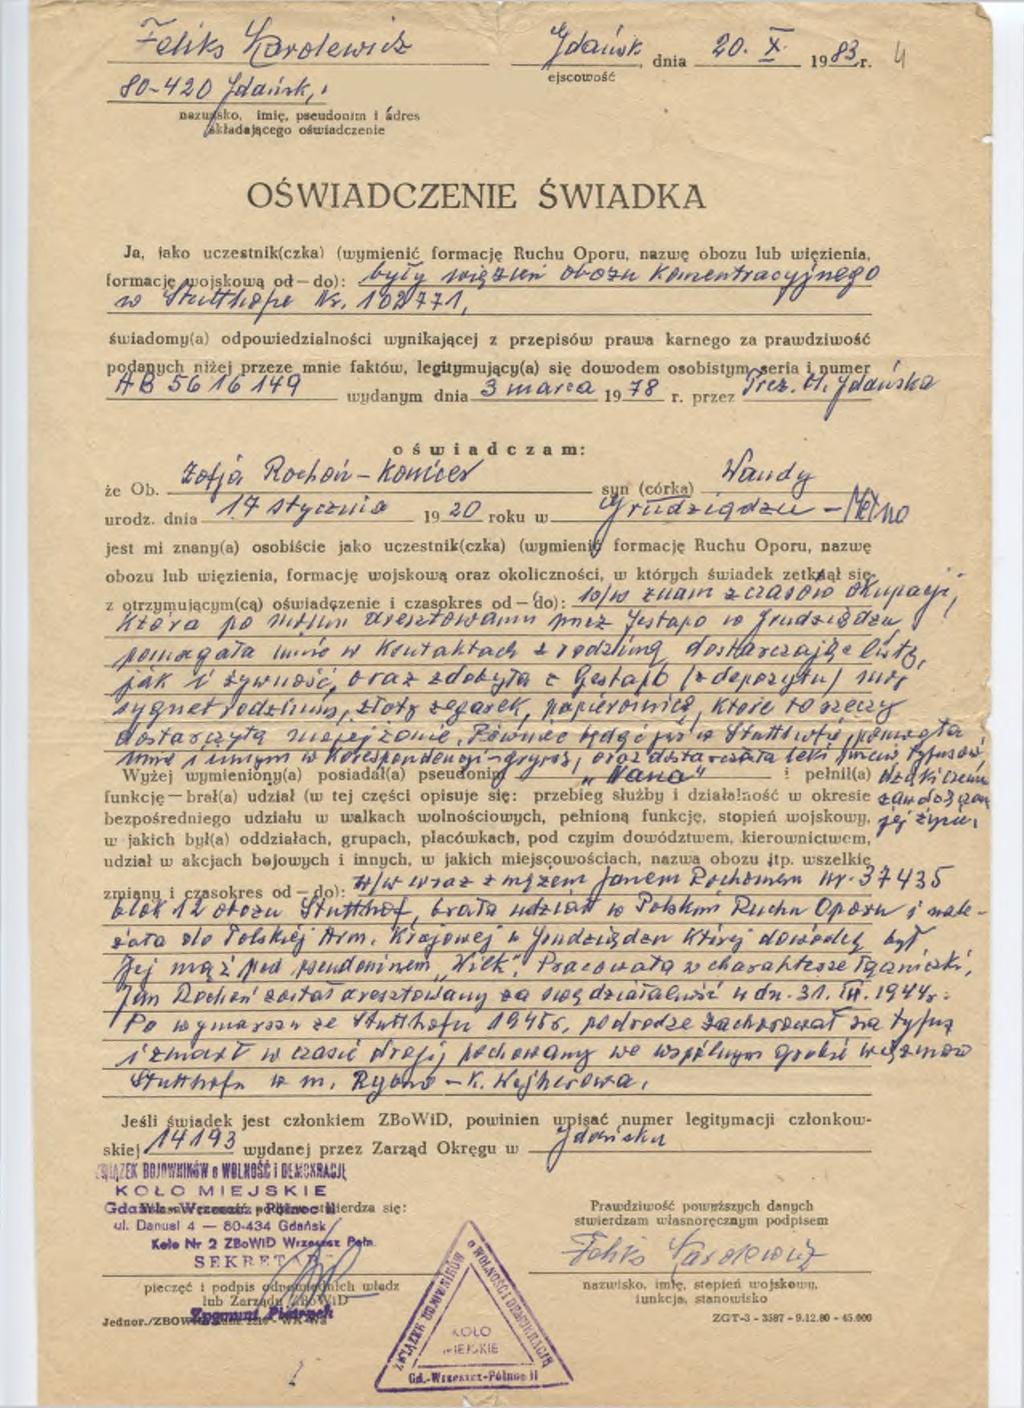 Feliks Sarolewicz Gdańsk, dnia 20. X. 1983 r. 4
80-420 Gdańsk, ejscowość
nazwisko, imię, pseudonim i adres
składającego oświadczenie
OŚWIADCZENIE ŚWIADKA
Ja, jako uczestnik(czka) (wymienić formację Ruchu Oporu, nazwę obozu lub więzienia,
formację wojskową od — do): były więzień obozu koncentracyjnego
w Stutthofie Nr. 102771,
świadomy(a) odpowiedzialności wynikającej z przepisów prawa karnego za prawdziwość
podanych niżej przeze mnie faktów, legitymujący(a) się dowodem osobistym seria i numer
AB 5616149 wydanym dnia 3 marca 1978 r. przez Prez. M. Gdańska
oświadczam:
że Ob. Zofja Rochoń - Komicer syn (córka) Wandy
urodz. dnia 17 stycznia 1920 roku w Grudziądzu - Mełno
jest mi znany(a) osobiście jako uczestnik(czka) (wymienić formację Ruchu Oporu, nazwę
obozu lub więzienia, formację wojskową oraz okoliczności, w których świadek zetknął się
z otrzymującym(cą) oświadczenie i czasokres od — do): znam z czasów okupacji,
Która po moim aresztowaniu przez Gestapo w Grudziądzu
pomagała mnie w kontaktach z rodziną dostarczając listy,
jak i żywność, oraz zdobyła z Gestapo (z depozytu) mój
sygnet rodzinny, złoty zegarek, papierośnicę, które to rzeczy
dostarczyła mojej żonie. Również będąc już w Stutthofie, pomogła
mnie i innym w korespondencji - gryps, oraz dostarczała leki przeciw tyfusowi,
Wyżej wymieniony(a) posiadał(a) pseudonim "Nana" i pełnił(a) dzięki czemu
funkcję — brał(a) udział (w tej części opisuje się: przebieg służby i działalność w okresie
bezpośredniego udziału w walkach wolnościowych, pełnioną funkcję, stopień wojskowy, jej życie,
w jakich był(a) oddziałach, grupach, placówkach, pod czyim dowództwem, kierownictwem,
udział w akcjach bojowych i innych, w jakich miejscowościach, nazwa obozu itp. wszelkie
zmiany i czasokres od — do): w/w wraz z mężem Janem Rochoniem nr. 37435
blok 12 obozu Stutthof, brała udział w Polskim Ruchu Oporu i nale-
żała do Polskiej Arm. Krajowej w Grudziądzu której dowódcą był
Jej mąż pod pseudonimem "Wilk". Pracowała w charakterze łączniczki,
Jan Rochoń został aresztowany za swą działalność w dn. 31. 1944 r.
Po wymarszu ze Stutthofu 1945 r. podrodze zachorował na tyfus
i zmarł w czasie drogi pochowany we wspólnym grobie więzniów
Stutthofu w m. Rybno - k. Wejherowa.
Jeśli świadek jest członkiem ZBoWiD, powinien wpisać numer legitymacji członkow-
skiej 14193 wydanej przez Zarząd Okręgu w Gdańsku
ZWIĄZEK BOJOWNIKÓW o WOLNOŚĆ i DEMOKRACJĘ
KOŁO MIEJSKIE
Gdańsk - Wrzeszcz - Północ II stwierdza się:
ul. Danusi 4 — 80-434 Gdańsk
Koło Nr 2 ZBoWiD Wrzeszcz Półn.
SEKRETARZ
pieczęć i podpis odpowiednich władz
lub Zarządu ZBoWiD
Zygmunt Pietrzych
Prawdziwość powyższych danych
stwierdzam własnoręcznym podpisem
Feliks Sarolewicz
nazwisko, imię, stopień wojskowy,
funkcja, stanowisko
ZGT-3 - 3587 - 9.12.80 - 45.000
ZWIĄZEK BOJOWNIKÓW o WOLNOŚĆ I DEMOKRACJĘ
KOŁO
MIEJSKIE
Gd.-Wrzeszcz-Północ II